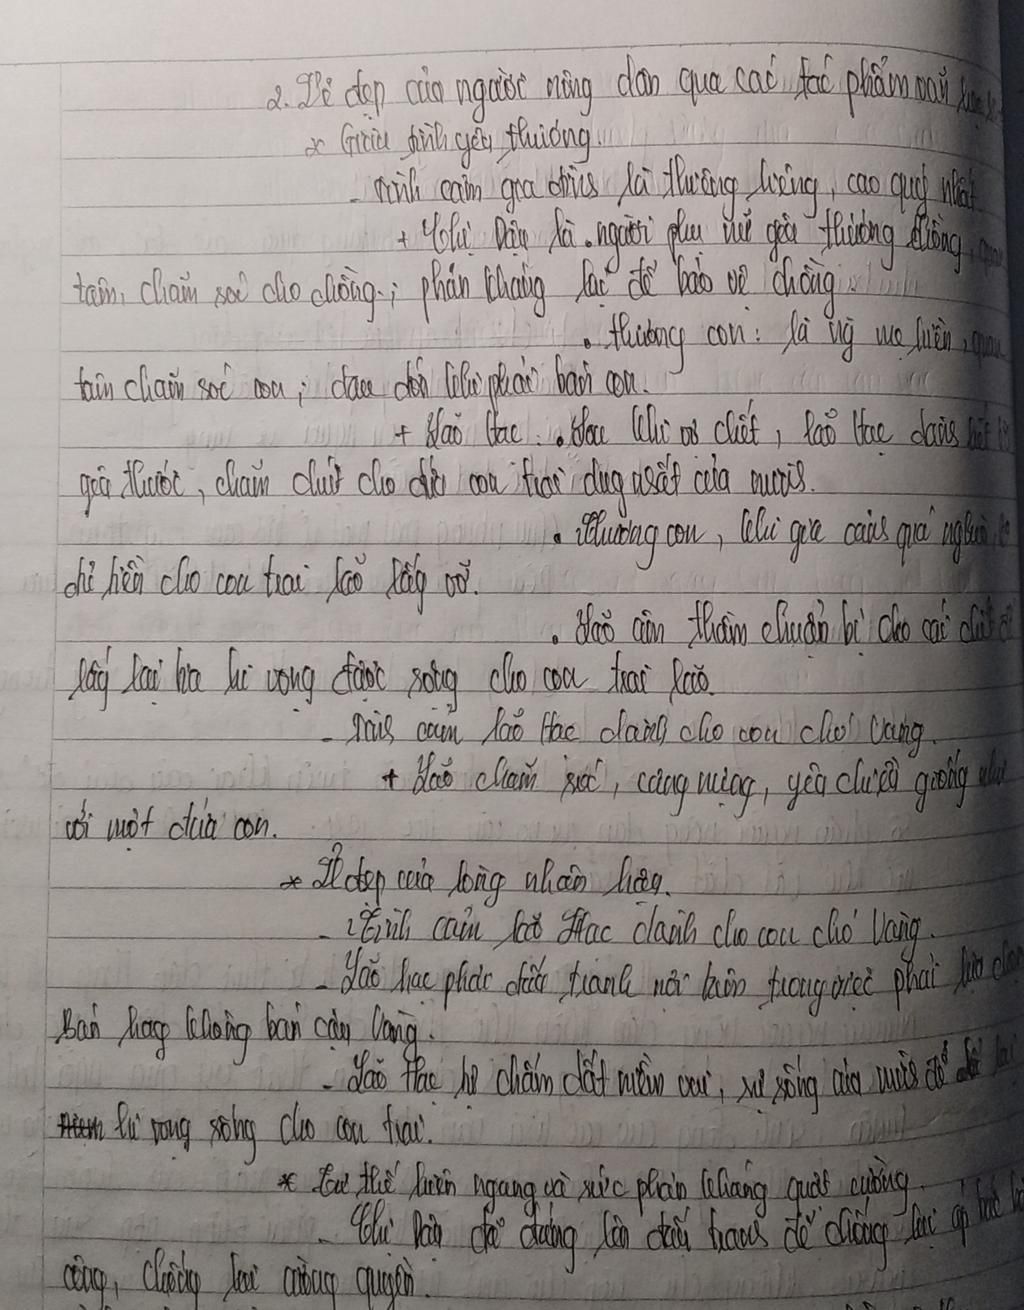 2. Vẻ đẹp của người nông dân qua các tác phẩm văn
* Giàu tình yêu thương.
- Tình cảm gia đình là thiêng liêng, cao quý nhất
+ Chị Dậu là người phụ nữ giàu thương chồng, quan
tâm, chăm sóc cho chồng; phản kháng lại để bảo vệ chồng
. thương con: là ng mẹ luôn quan
tâm chăm sóc con; đau đớn khi phải bán con.
+ Lão Hạc: . Sau khi vợ chết, lão Hạc dành hết
gà thước, chăm chút cho đứa con trai duy nhất của mình.
. Thương con, khi gia cảnh quá nghèo
chỉ hiền cho con trai lão lấy vợ.
. Lão âm thầm chuẩn bị cho cái chết để
lấy lại hi vọng được sống cho con trai lão.
- Tình cảm lão Hạc dành cho con chó Vàng.
+ Lão chăm sóc, cưng nựng, yêu chiều giống như
với một đứa con.
* Vẻ đẹp của lòng nhân hậu.
- Tình cảm lão Hạc dành cho con chó Vàng.
- Lão hạc phải đấu tranh nội tâm trong việc phải lựa chọn
Bán hay không bán cậu Vàng.
- Lão Hạc chấm dứt niềm vui, sự sống của mình để
hi vọng sống cho con trai.
* tư thế hiên ngang và sức phản kháng quật cường.
- Chị Dậu đã đứng lên đấu tranh để chống lại áp bức bất
công, chống lại cường quyền.